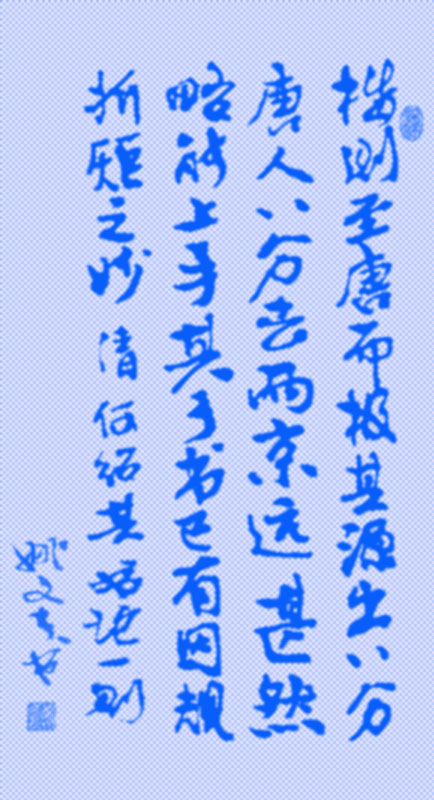 楷则至唐而极其源出八分
唐人八分去两京远甚然
略能上手其于书已有因规
折矩之妙 清 何绍基 论 一则
姚文 书